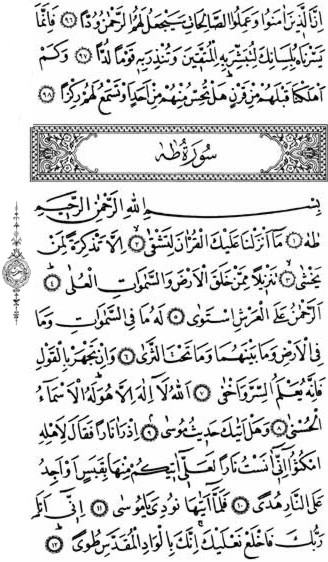 اِنَّ الَّذ۪ينَ اٰمَنُوا وَعَمِلُوا الصَّالِحَاتِ سَيَجْعَلُ لَهُمُ الرَّحْمٰنُ وُدًّا ﴿٩٦﴾ فَاِنَّمَا
يَسَّرْنَاهُ بِلِسَانِكَ لِتُبَشِّرَ بِهِ الْمُتَّق۪ينَ وَتُنْذِرَ بِه۪ قَوْمًا لُدًّا ﴿٩٧﴾ وَكَمْ
اَهْلَكْنَا قَبْلَهُمْ مِنْ قَرْنٍ هَلْ تُحِسُّ مِنْهُمْ مِنْ اَحَدٍ اَوْ تَسْمَعُ لَهُمْ رِكْزًا ﴿٩٨﴾
سُورَةُ طٰهٰ
بِسْمِ اللّٰهِ الرَّحْمٰنِ الرَّح۪يمِ
طٰهٰ ﴿١﴾ مَٓا اَنْزَلْنَا عَلَيْكَ الْقُرْاٰنَ لِتَشْقٰى ﴿٢﴾ اِلَّا تَذْكِرَةً لِمَنْ
يَخْشٰى ﴿٣﴾ تَنْز۪يلًا مِمَّنْ خَلَقَ الْاَرْضَ وَالسَّمٰوَاتِ الْعُلٰى ﴿٤﴾
اَلرَّحْمٰنُ عَلَى الْعَرْشِ اسْتَوٰى ﴿٥﴾ لَهُ مَا فِي السَّمٰوَاتِ وَمَا
فِي الْاَرْضِ وَمَا بَيْنَهُمَا وَمَا تَحْتَ الثَّرٰى ﴿٦﴾ وَاِنْ تَجْهَرْ بِالْقَوْلِ
فَاِنَّهُ يَعْلَمُ السِّرَّ وَاَخْفٰى ﴿٧﴾ اَللّٰهُ لَٓا اِلٰهَ اِلَّا هُوَ لَهُ الْاَسْمَٓاءُ
الْحُسْنٰى ﴿٨﴾ وَهَلْ اَتٰيكَ حَد۪يثُ مُوسٰى ﴿٩﴾ اِذْ رَاٰ نَارًا فَقَالَ لِاَهْلِهِ
امْكُثُٓوا اِنّ۪ٓي اٰنَسْتُ نَارًا لَعَلّ۪ٓي اٰت۪يكُمْ مِنْهَا بِقَبَسٍ اَوْ اَجِدُ
عَلَى النَّارِ هُدًى ﴿١٠﴾ فَلَمَّٓا اَتٰيهَا نُودِيَ يَا مُوسٰى ﴿١١﴾ اِنّ۪ٓي اَنَا۬
رَبُّكَ فَاخْلَعْ نَعْلَيْكَ اِنَّكَ بِالْوَادِ الْمُقَدَّسِ طُوًى ﴿١٢﴾